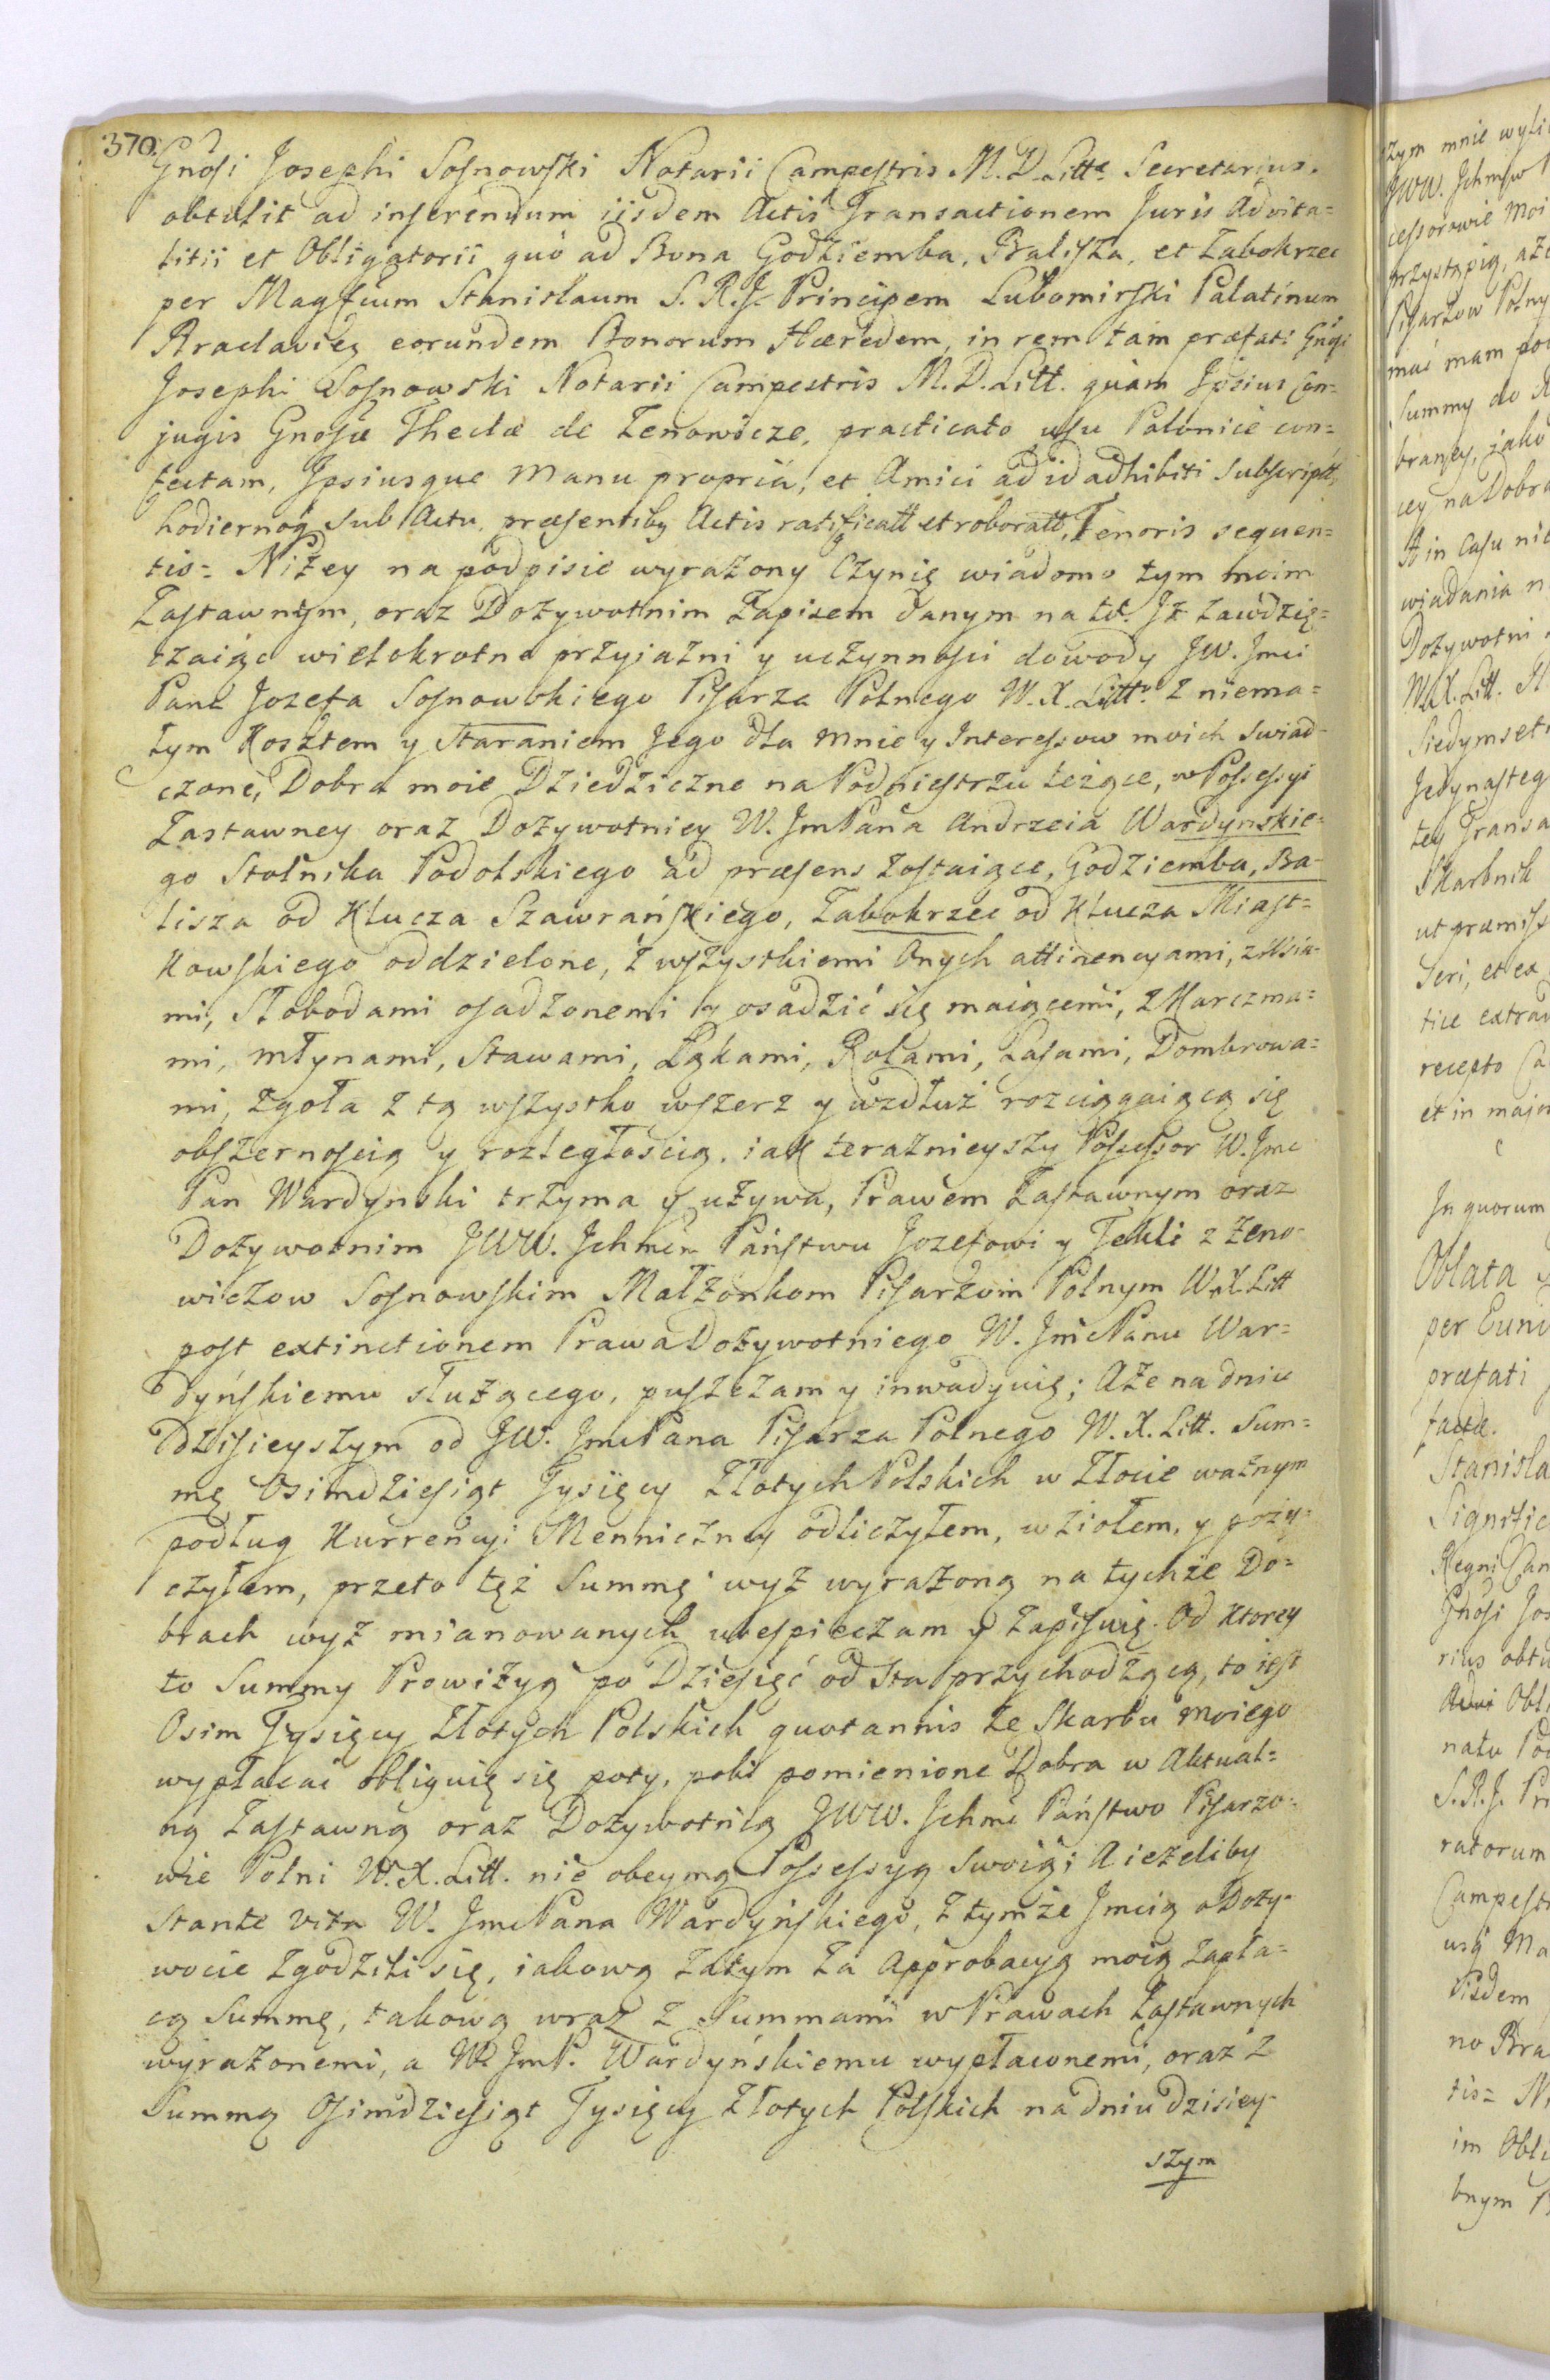 370.
Gnosi Josephi Sosnowski Notarii Campestris M. D. Littæ Secretarius.
obtulit ad inserendum iisdem Actis Transactionem Juris Advita=
litii et Obligatorii quò ad Bona Godziemba, Balisza, et Zabokrzec
per Magficum Stanislaum S. R. J. Principem Lubomirski Palatinum
Braclavieñ eorundem Bonorum Hæredem, in rem tam præfati Gnosi
Josephi Sosnowski Notarii Campestris M. D. Litt. quàm Ipsius Con=
jugis Gnosæ Theclæ de Zenowicze, practicato usu Polonicè con=
fectam, Ipsiusque manu propriâ, et Amici ad id adhibiti Subscriptt,
hodierno sub Actu, præsentibq Actis ratificatt et roboratt, Tenoris sequen=
tis= Niżey na podpisie wyrażony Czynię wiadomo tym moim
Zastawnym, oraz Dożywotnim Zapisem danym na to: Iż zawdzię=
czaiąc wielokrotne przyiaźni y uczynności dowody JW. Jmci
Pana Jozefa Sosnowskiego Pisarza Polnego W. X. Litto z niema=
łym Kosztem y Staraniem Jego dla mnie y Interessow moich swiad=
czone, Dobra moie Dziedziczne na Podniestrzu leżące, w Possessyi
Zastawney oraz Dożywotniey W. Jm Pana Andrzeia Wardynskie=
go Stolnika Podolskiego ad præsens zostaiące, Godziemba, Ba-
lisza od Klucza Szawrańskiego, Zabokrzec od Klucza Miast=
kowskiego oddzielone, z wszystkiemi onych attinencyami, z Wsia-
mi, Słobodami osadzonemi y osadzić się maiącemi, z Karczma=
mi, młynami, Stawami, Łąkami, Rolami, Lasami, Dombrowa=
mi, zgoła z tą wszystko wszerz y wzdłuż rozciągaiącą się
obszernością y rozległością. iak teraznieyszy Possessor W. Jmc
Pan Wardynski trzyma y używa, Prawem Zastawnym oraz
Dożywotnim JWW. Ichmcm Państwu Jozefowi y Tekli z Zeno=
wiczow Sosnowskim Małżonkom Pisarzom Polnym W. X. Litt
post extinctionem Prawa Dożywotniego W. Jmc Panu War=
dyńskiemu służącego, puszczam y inwadyuię; A że na dniu
Dzisieyszym od JW. Jmc Pana Pisarza Polnego W. X. Litt. Sum=
mę Osimdziesiąt Tysięcy Złotych Polskich w Złocie ważnym
podług Kurrencyi Menniczney odliczyłem, wziołem, y poży=
czyłem, przeto tęż Summę wyż wyrażoną na tychże Do=
brach wyż mianowanych ubespieczam y zapisuię. Od Ktorey
to Summy Prowizyą po Dziesięć od Sta przychodzącą, to iest
Osim Tysięcy Złotych Polskich quotannis ze Skarbu moiego
wypłacac obliguię się poty, poki pomienione Dobra w Aktual=
ną Zastawną oraz Dożywotnią JWW. Ichmc Państwo Pisarzo=
wie Polni W. X. Litt. nie obeymą Possessyą Swoią; A ieżeliby
Stante vita W. Jmc Pana Wardyńskiego, z tymże Jmcią o Doży=
wocie zgodzili się, iakową zatym za Approbacyą moią zapła=
cą Summę, takową wraz z Summami w Prawach Zastawnych
wyrażonemi, a W. JmP. Wardyńskiemu wypłaconemi, oraz z
Summą Osimdziesiąt Tysięcy Złotych Polskich na dniu dzisiey-
szym
szym mnie wyli
JWW. Ichmciow
cessorowie Moi
przystąpią, aże
Pisarzow Polny
mać mam po
Summy do
braney, iako
cey na Dobra
A in Casu nie
wiadania n
Dożywotni
W. X. Litt.
Siedymset
Jedynasteg
tey Transa
Skarbnik
ut præmiss
seri, et ex
tice extrad
recepto
et in major
In quorum
Oblata
per Eund
præfati
factæ.
Stanisla
Signific
Regni Can
Gnosi Jos
rius obtu
Obl
natu Pod
S. R. J. Pri
ratorum
Campestr
usq Ma
Visdem
no Bra
tis= Ni
im Obl
bnym